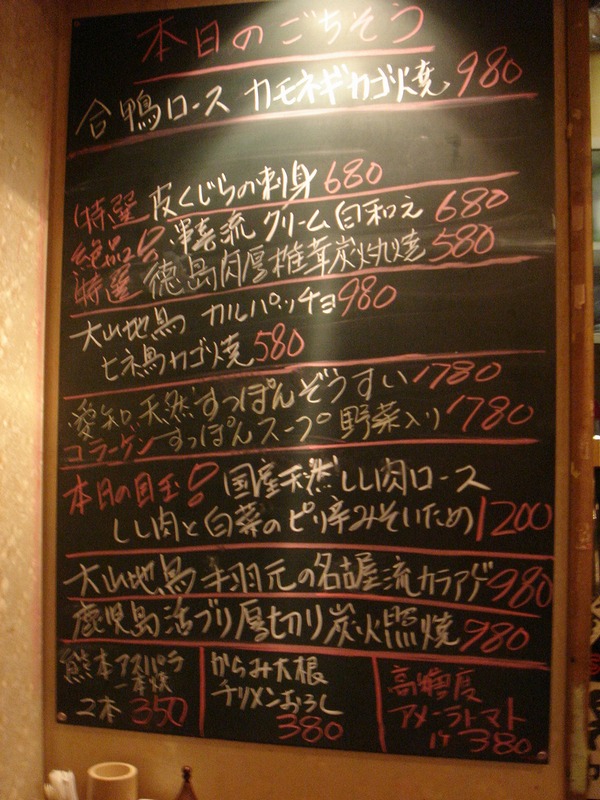 本日のごちそう
合鴨ロース カモネギカゴ焼 980
特選 皮くじらの刺身 680
絶品!! 串喜流 クリーム白和え 680
特選 徳島肉厚椎茸炭火焼 580
大山地鳥 カルパッチョ 980
ヒネ鳥カゴ焼 580
愛知 天然すっぽんぞうすい 1780
コラーゲン すっぽんスープ 野菜入り 1780
本日の目玉! 国産天然しし肉ロース
しし肉と白菜のピリ辛みそいため 1200
大山地鳥手羽元の名古屋流カラアゲ 980
鹿児島活ブリ厚切り炭火照焼 980
熊本アスパラ
一本焼
2本 350
からみ大根
チリメンおろし
380
高糖度
アメーラトマト
1ケ 380